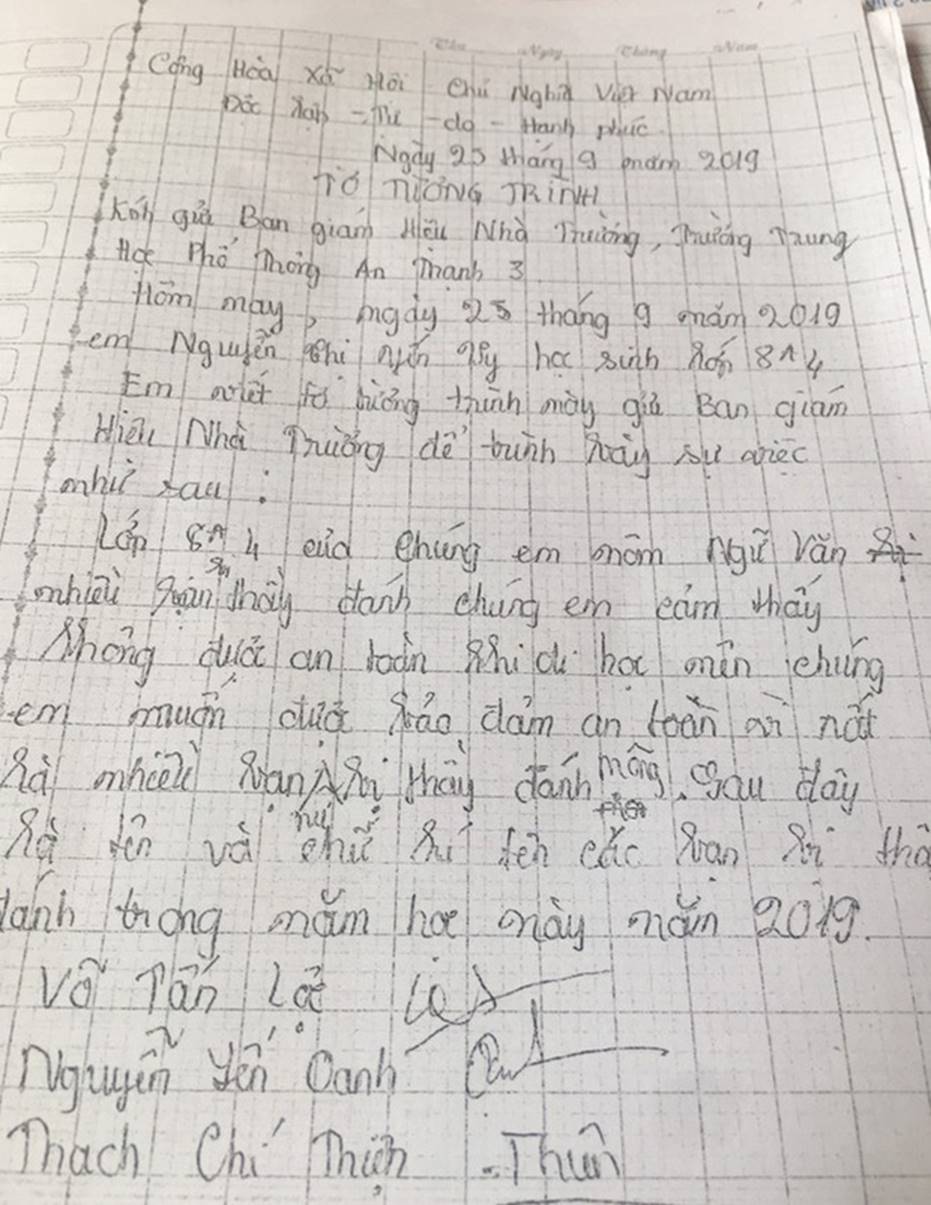 Thứ Ngày Tháng Năm
Cộng Hòa Xã Hội Chủ Nghĩa Việt Nam
Độc lập - Tự - do - Hạnh phúc
Ngày 25 tháng 9 năm 2019
TỜ TƯỜNG TRÌNH
Kính gửi Ban giám Hiệu Nhà Trường, Trường Trung
Học Phổ Thông An Thạnh 3
Hôm nay, ngày 25 tháng 9 năm 2019
em Nguyễn thị yến học sinh lớp 8A4
Em viết tờ tường trình này gửi Ban giám
Hiệu Nhà Trường để trình bày sự việc
như sau :
Lớp 8A4 của chúng em môn Ngữ Văn bị
nhiều lần bị thầy đánh chúng em cảm thấy
không được an toàn khi đi học nên chúng
em muốn được bảo đảm an toàn vì rất
là nhiều bạn bị thầy đánh mông. Sau đây
là tên và chữ kí tên các bạn bị thầ
đánh trong năm học này năm 2019.
Võ Tấn Lộc
Nguyễn Yến Oanh
Thạch Chí Thiện Thiện